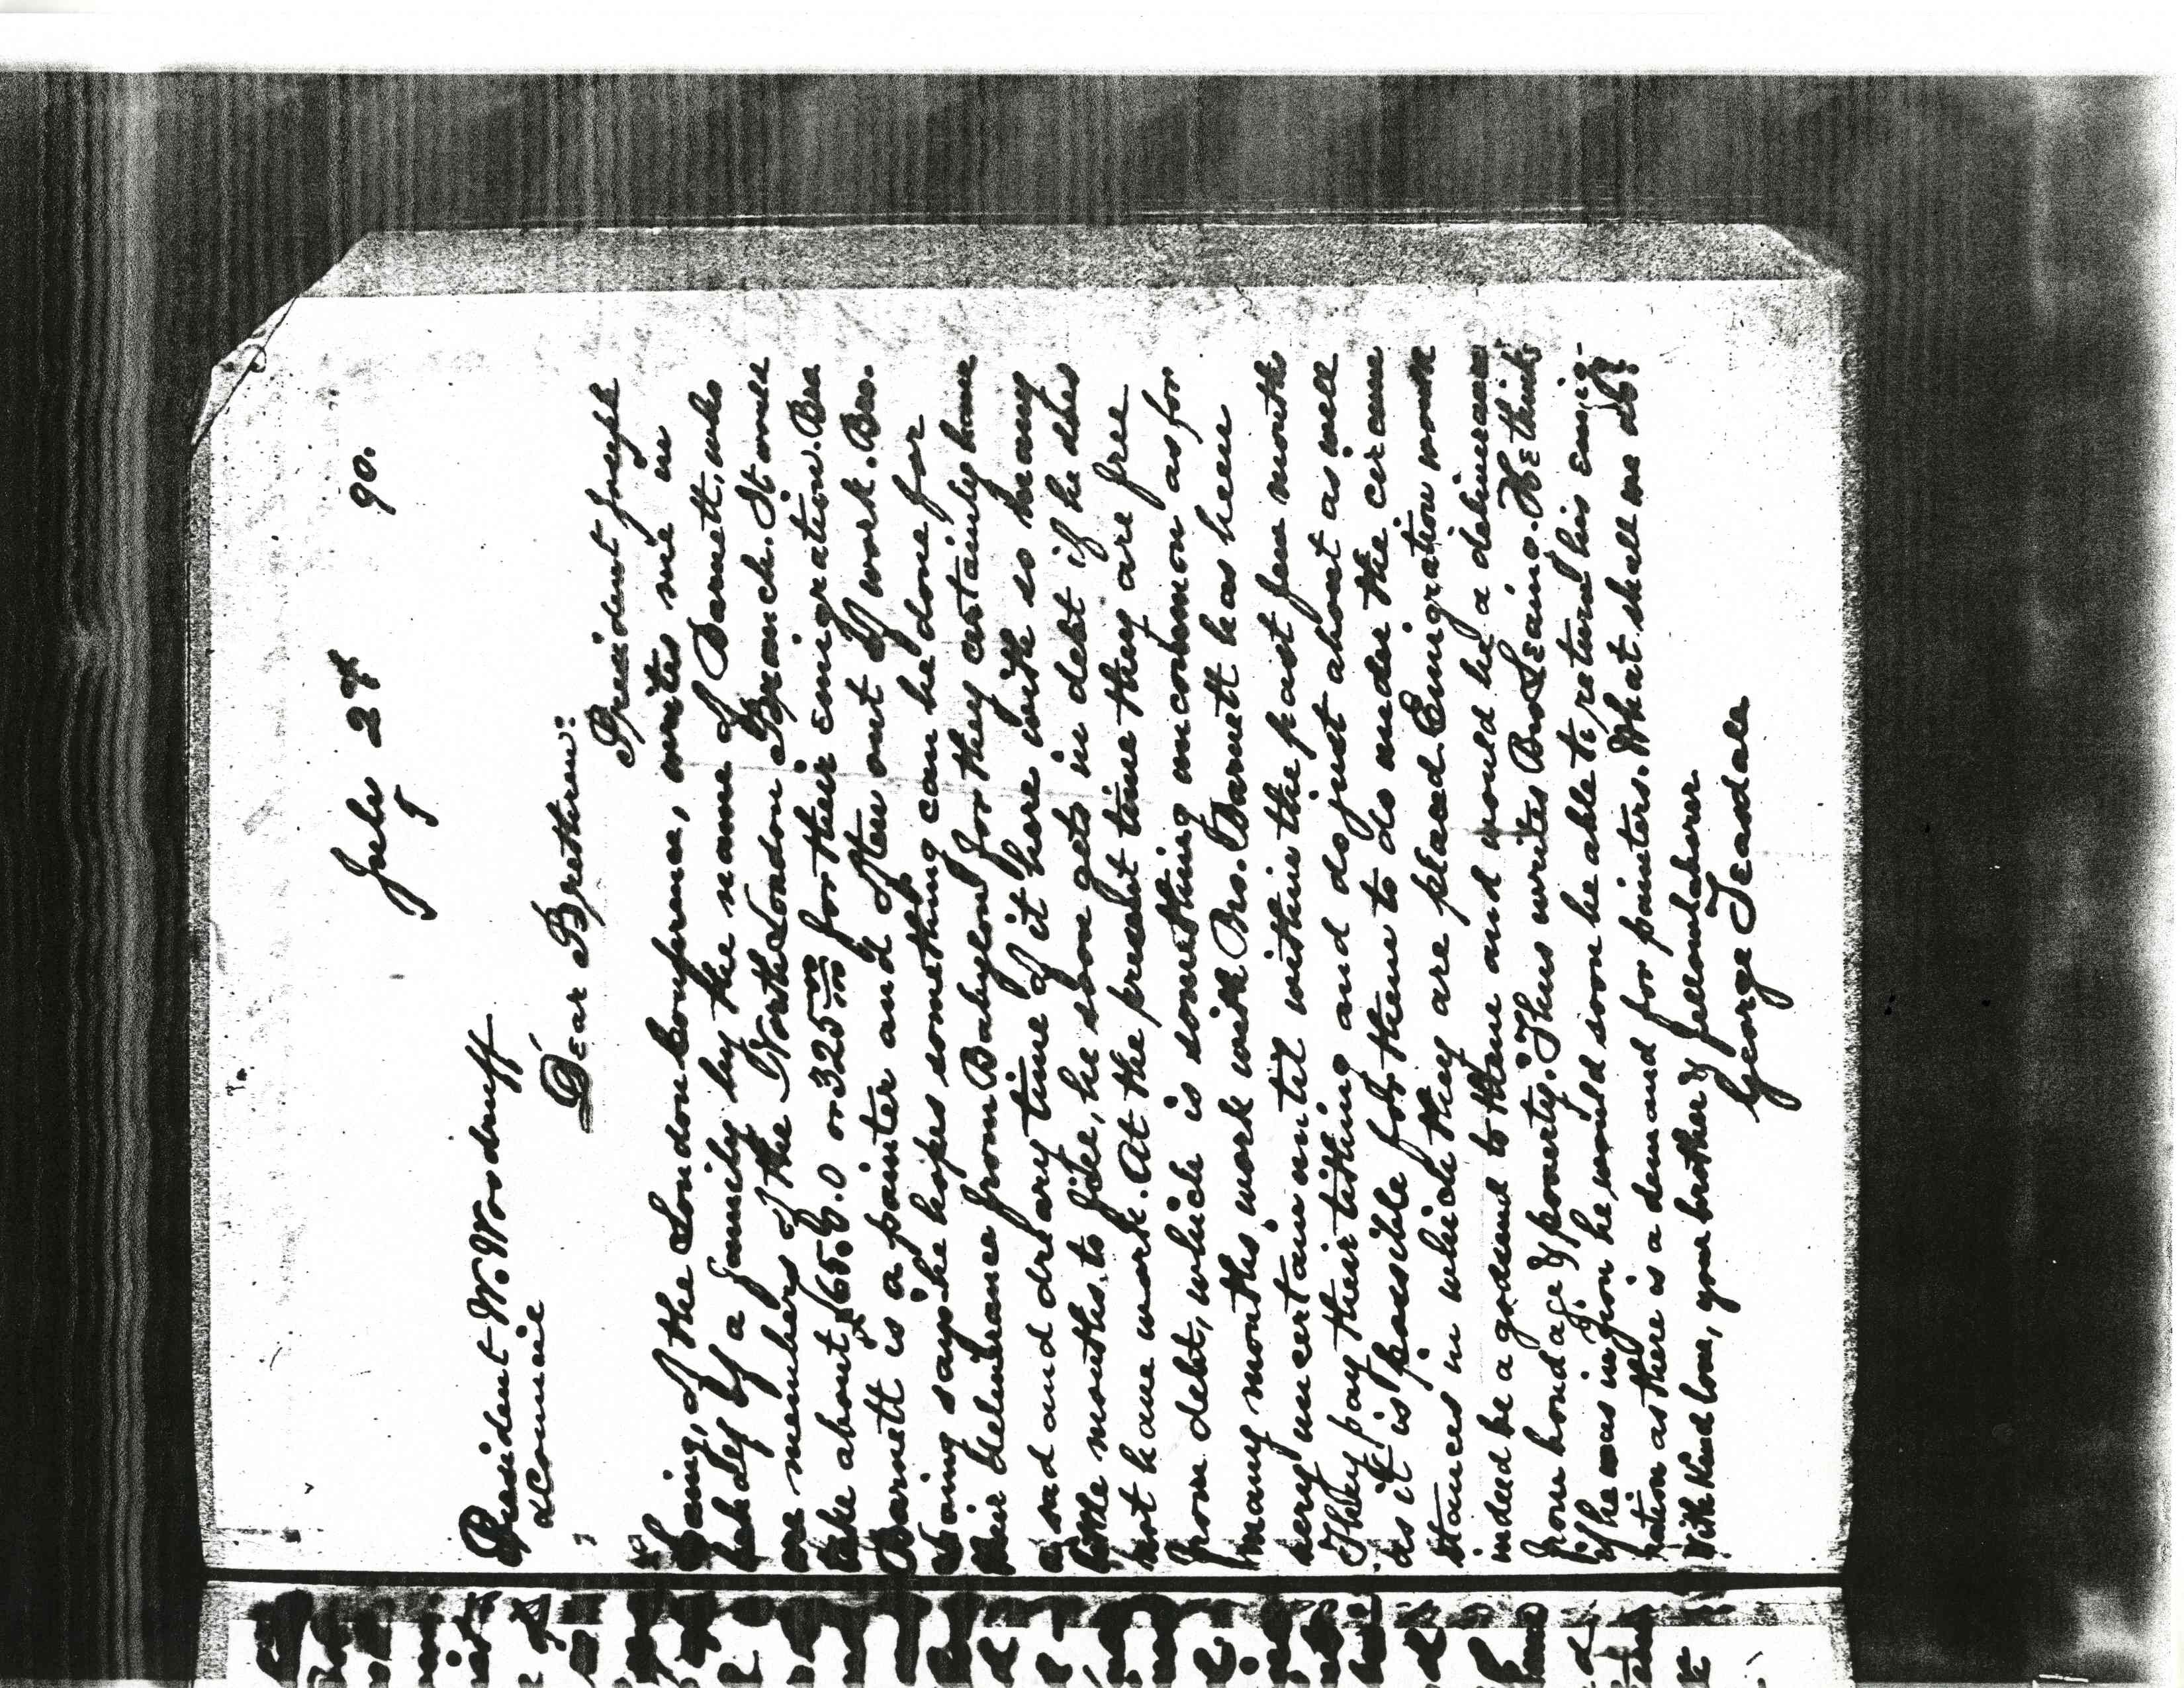 July 24 90.
President W. Woodruff
& Council
Dear Brethren:
President Joseph
Laing, of the London Conference, writes me in
behalf of a family by the name of Barnett, who
are members of the North London Branch. It would
take about £65.0.0 or 325 00/100 for their emigration. Bro
Barnett is a painter and often out of work. Bro.
Laing says he hopes something can be done for
their deliverance from Babylon for they certainly have
a sad and dreary time of it here with so many
little mouths to feed, he soon gets in debt if he does
not have work. At the present time they are free
from debt, which is something uncommon as for
many months work with Bro. Barnett has been
very uncertain until within the past few month
They pay their tithing and do just about as well
as it is possible for them to do under the circum
stances in which they are placed. Emigration would
indeed be a godsend to them and would be a deliverance
from bondage & poverty." Thus writes Bro Laing. He thinks
if he was in Zion he would soon be able to return his emig-
ration as there is a demand for painters. What shall we do?
With kind love, your brother & fellowlaborer
George Teasdale